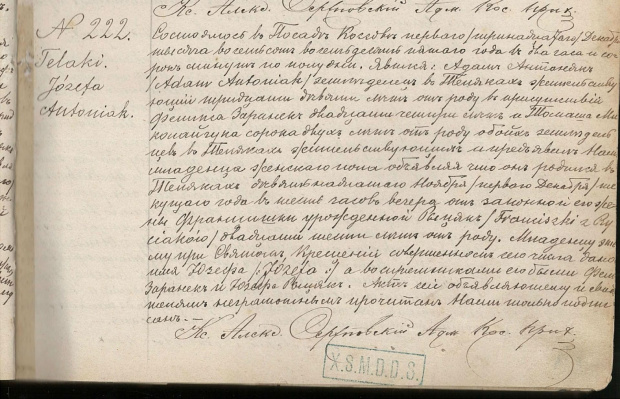 Кс. Алекд. Серповскій Адм. Кос. прих.
N. 222.
Telaki.
Józefa
Antoniak.
Состоялось въ Посадѣ Коссовѣ перваго /тринадцатаго/ Декабр
тысяча восемьсотъ восемьдесятъ пятаго года въ два часа и со
рокъ минутъ по полудни. Явился: Адамъ Антонякъ
/Adam Antoniak/ земледѣлецъ въ Телякахъ жительству
ющій тридцати девяти лѣтъ отъ роду въ присутствіи
Феликса Заранекъ двадцати четыри лѣтъ и Томаша Ми
колайчука сорока двухъ лѣтъ отъ роду обоихъ земледѣль
цевъ въ Телякахъ жительствующихъ и предъявилъ Намъ
младенца женскаго пола объявляя что онъ родился въ
Телякахъ девятнадцатаго Ноября /перваго Декабря/ те
кущаго года въ шесть часовъ вечера отъ законной его же
ны Францишки урожденной Рыцякъ /Franciszki z Ry
ciaków/ двадцати шести лѣтъ отъ роду. Младенцу это
му при Святомъ Крещеніи совершенномъ сего числа дано
имя Юзефа /:Józefa:/ а воспріемниками его были Фел
Заранекъ и Юзефа Рыцякъ. Актъ сей объявляющему и сви
телямъ неграмотнымъ прочитанъ Нами только подпи
санъ.
Кс. Алекд. Серповскій Адм. Кос. прих.
X.S.M.D.D.S.